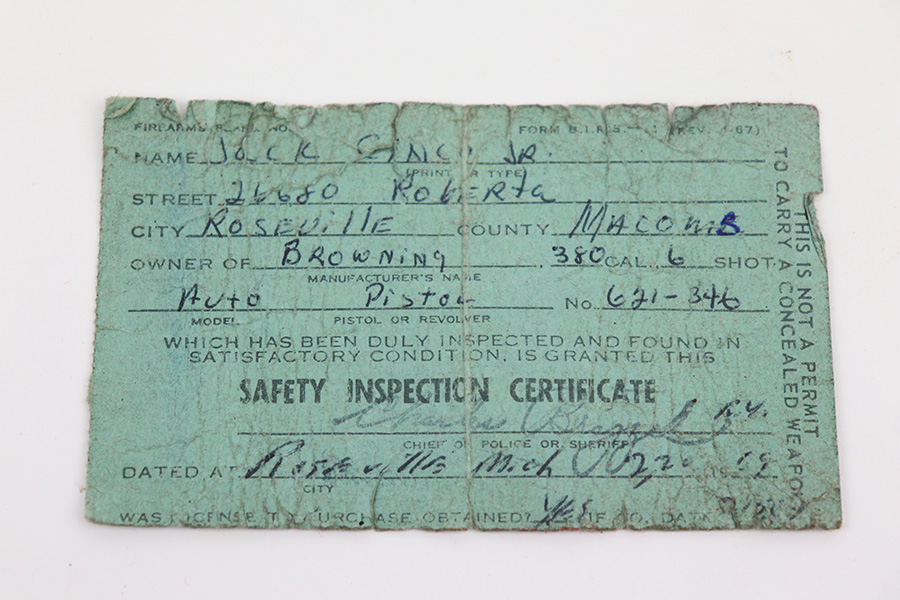 FIREARMS BLANK NO. FORM B.I.R.S. (REV. -67)
NAME Jack Jr.
(PRINT OR TYPE)
STREET 26680 Roberta
CITY Roseville COUNTY Macomb
OWNER OF Browning .380 CAL. 6 SHOT
MANUFACTURER'S NAME
Auto Pistol No. 621-346
MODEL PISTOL OR REVOLVER
WHICH HAS BEEN DULY INSPECTED AND FOUND IN
SATISFACTORY CONDITION, IS GRANTED THIS
SAFETY INSPECTION CERTIFICATE
Charles
CHIEF OF POLICE OR SHERIFF
DATED AT Roseville Mich 19
CITY
WAS LICENSE TO PURCHASE OBTAINED? Yes IF SO, DATE
THIS IS NOT A PERMIT
TO CARRY A CONCEALED WEAPON